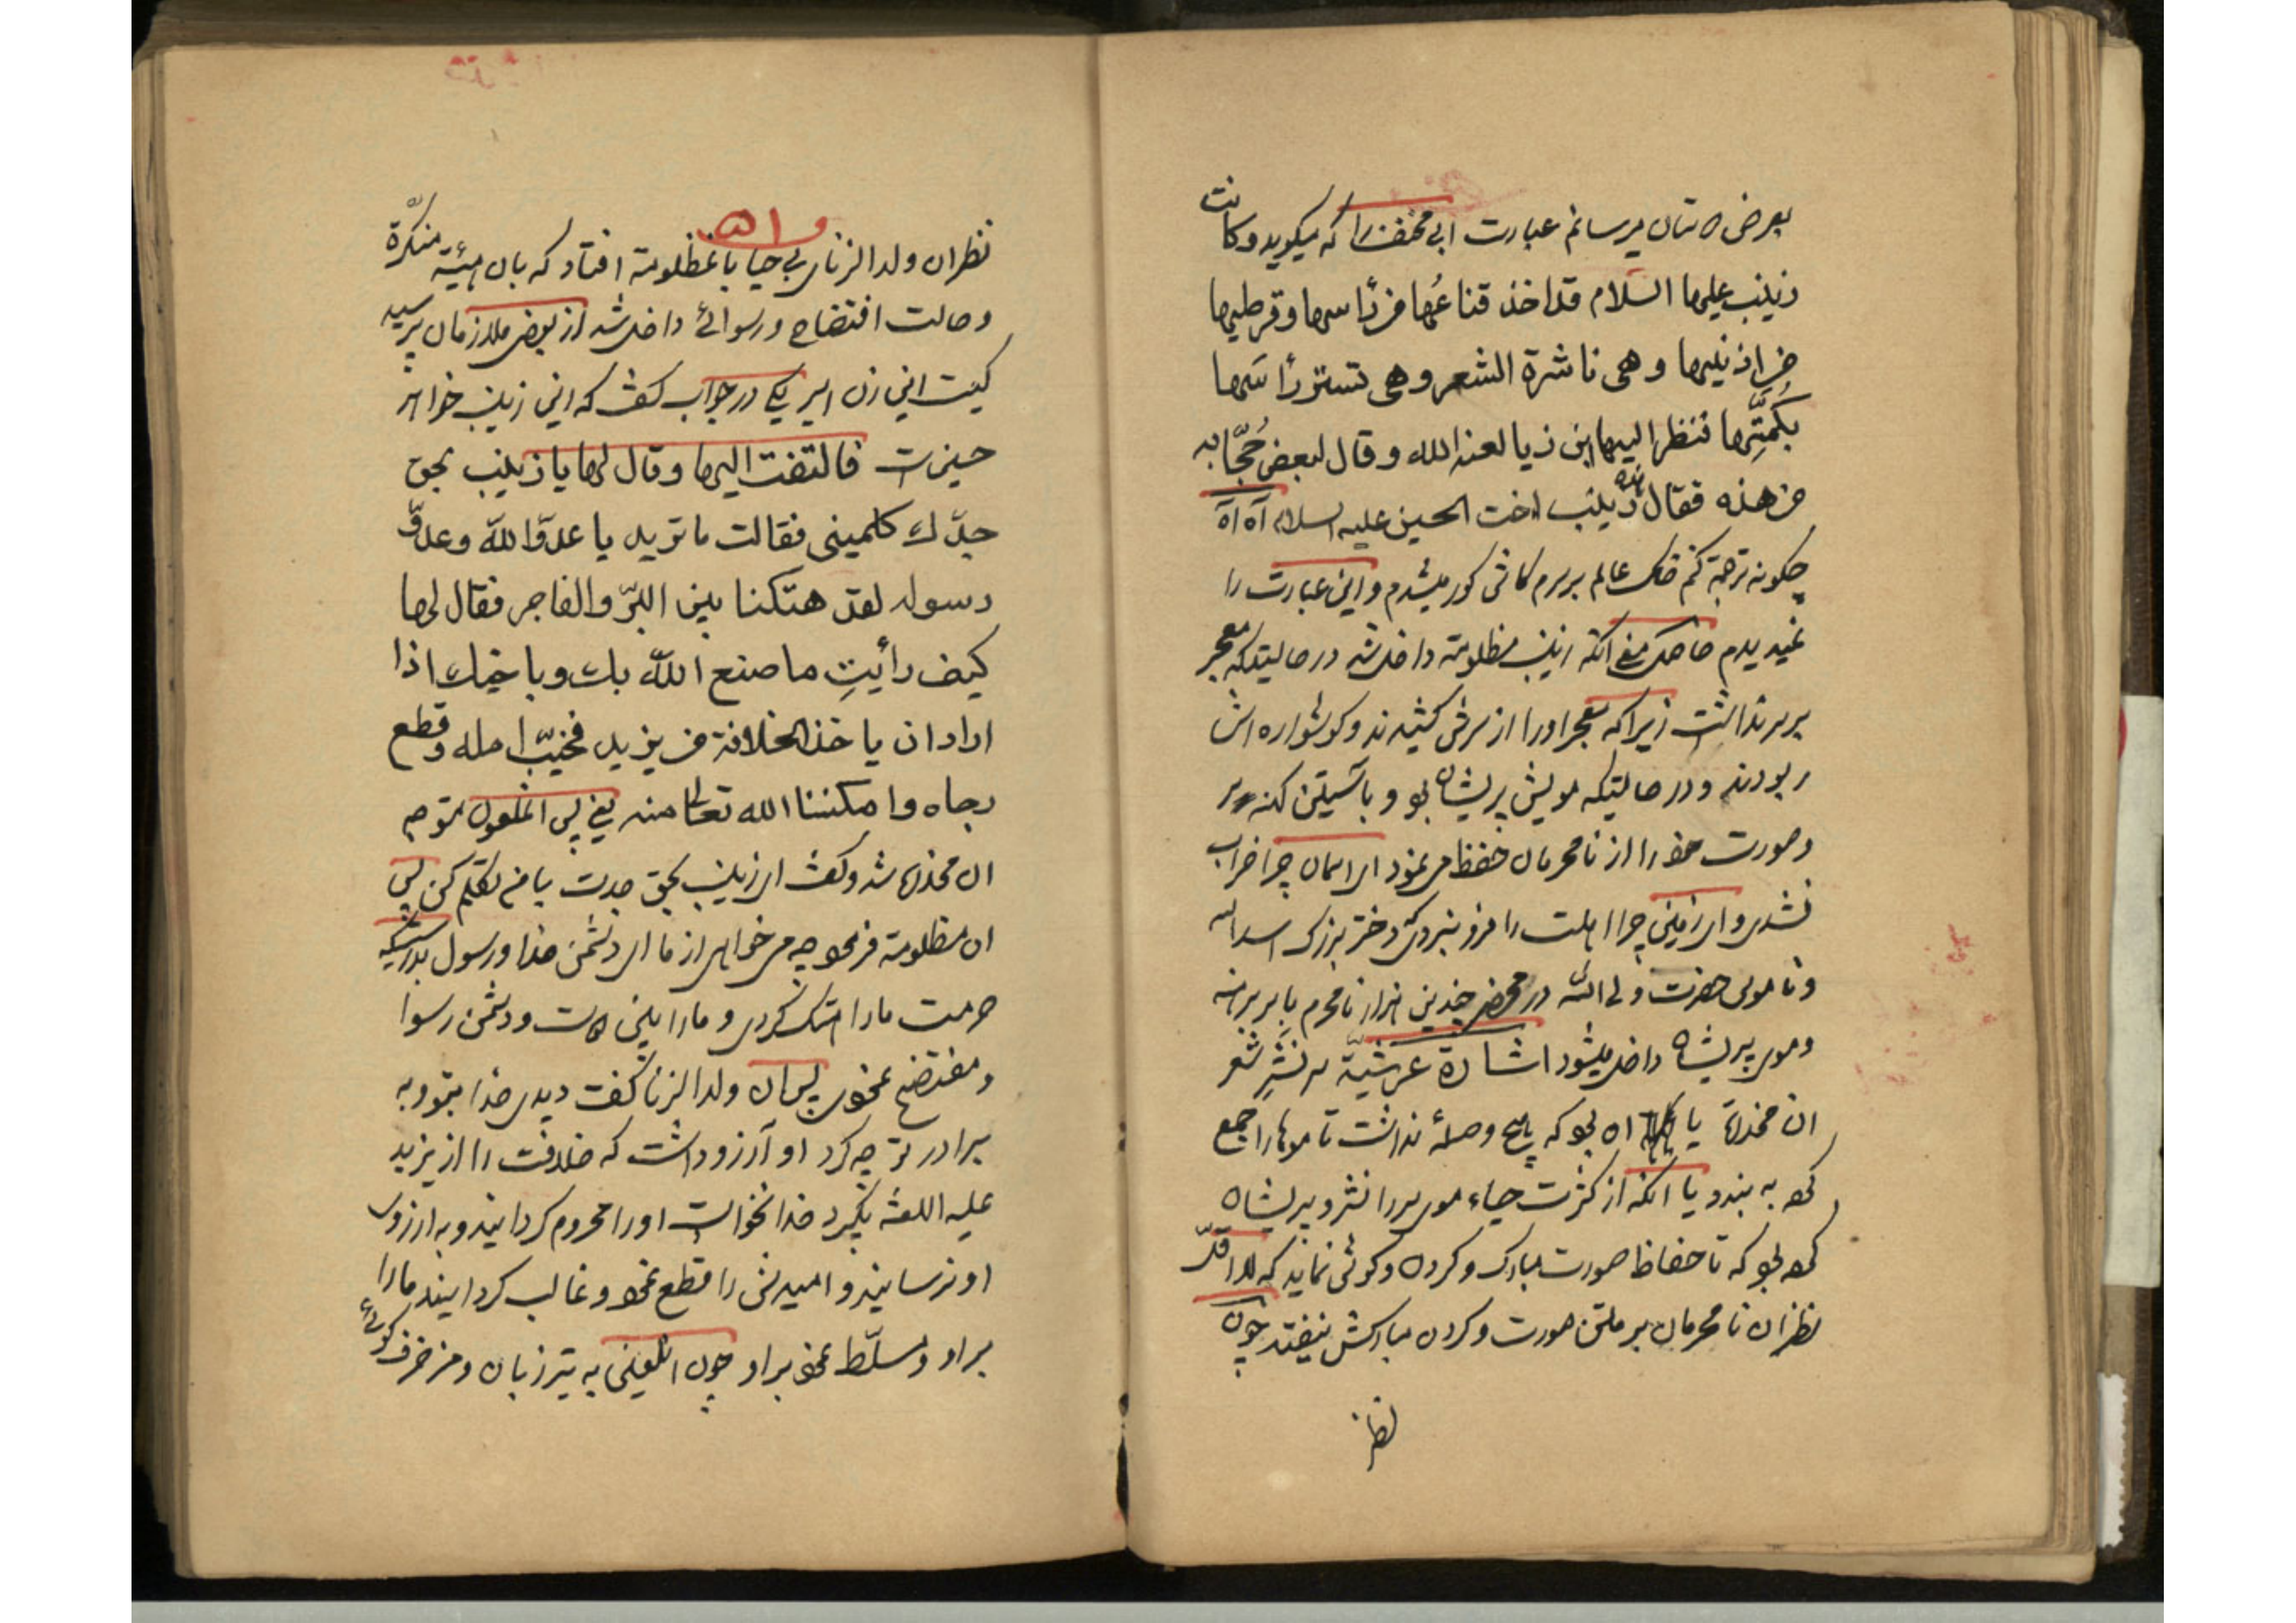 بعرض تان میرسانم عبارت ابی مخنف را که میکوید وکانت
زینب علیها السلام قد اخذ قناعُها من رأسها وقرطیها
من اذنیها وهی ناشرة الشعر وهی تستر رأسَها
بکُمِّها فنظر الیها ابن زیا لعنه الله وقال لبعض حُجّابه
من هذه فقال هذه زینب اخت الحسین علیه السلام آه آه
چکونه ترجمة کنم خاک عالم بر سرم کاش کور میشدم و این عبارت را
نمیدیدم حاصل معنی انکه زینب مظلومة داخل شد در حالیتکه معجر
بر سر نداشت زیرا که معجر اورا از سرش کشیدند وکوشواره اش
ربودند و در حالیتکه مویش پریشان بو و باستین کهنه سر
وصورت خو را از نامحرمان حفظ می نمود ای اسمان چرا خراب
نشدی و ای زمین چرا اهلت را فرو نبردی دختر بزرک اسد الله
وناموس حضرت ولی الله در محضر چندین هزار نامحرم با سر برهنه
وموی پریشان داخل میشود اشارة عرشیّة سر نشرِ شعر
ان مخدرة یا ان بو که هیچ وصلهٔ نداشت تا موها را جمع
کرده به بندد یا انکه از کثرت حیاء موی سر را نشر و پریشان
کرده بو که تا حفاظ صورت مبارک و کردن و کوش نماید که لااقلّ
نظر ان نامحرمان بر متن صورت و کردن مبارکش نیفتد چون
نظر
نظر ان ولد الزنای بی حیا با نمظلومة افتاد که بان هیئة منکرّة
وحالت افتضاح ورسوائی داخل شد از بعض ملازمان پرسید
کیست این زن اسیر یکی در جواب کفت که این زینب خواهر
حسین است فالتفت الیها وقال لها یا زینب بحق
جدّك کلمینی فقالت ما ترید یا عدوّ اللّه وعدوّ
رسوله لقد هتکتنا بین البرّ والفاجر فقال لها
کیف رأیتِ ما صنع اللّه بك وباخیك اذا
اراد ان یاخذ الخلافة من یزید فخیّب امله وقطع
رجاه وامکننا الله تعالی منه یعنی پس انملعون متوجه
ان مخدره شد وکفت ای زینب بحق جدت با من تکلم کن پس
ان مظلومة فرمو چه می خواهی از ما ای دشمن خدا ورسول بدرستیکه
حرمت مارا هتک کردی و مارا بین دوست ودشمن رسوا
ومفتضح نمودی پس ان ولد الزنا کفت دیدی خدا بتو وبه
برادر تو چه کرد او آرزو داشت که خلافت را از یزید
علیه اللعنة بگیرد خدا نخواست اورا محروم کردانید وبه ارزوی
او نرسانید و امیدش را قطع نمو وغالب کردانید مارا
براو ومسلّط نمو براو چون انلعین به تیز زبان ومزخرف کوئی